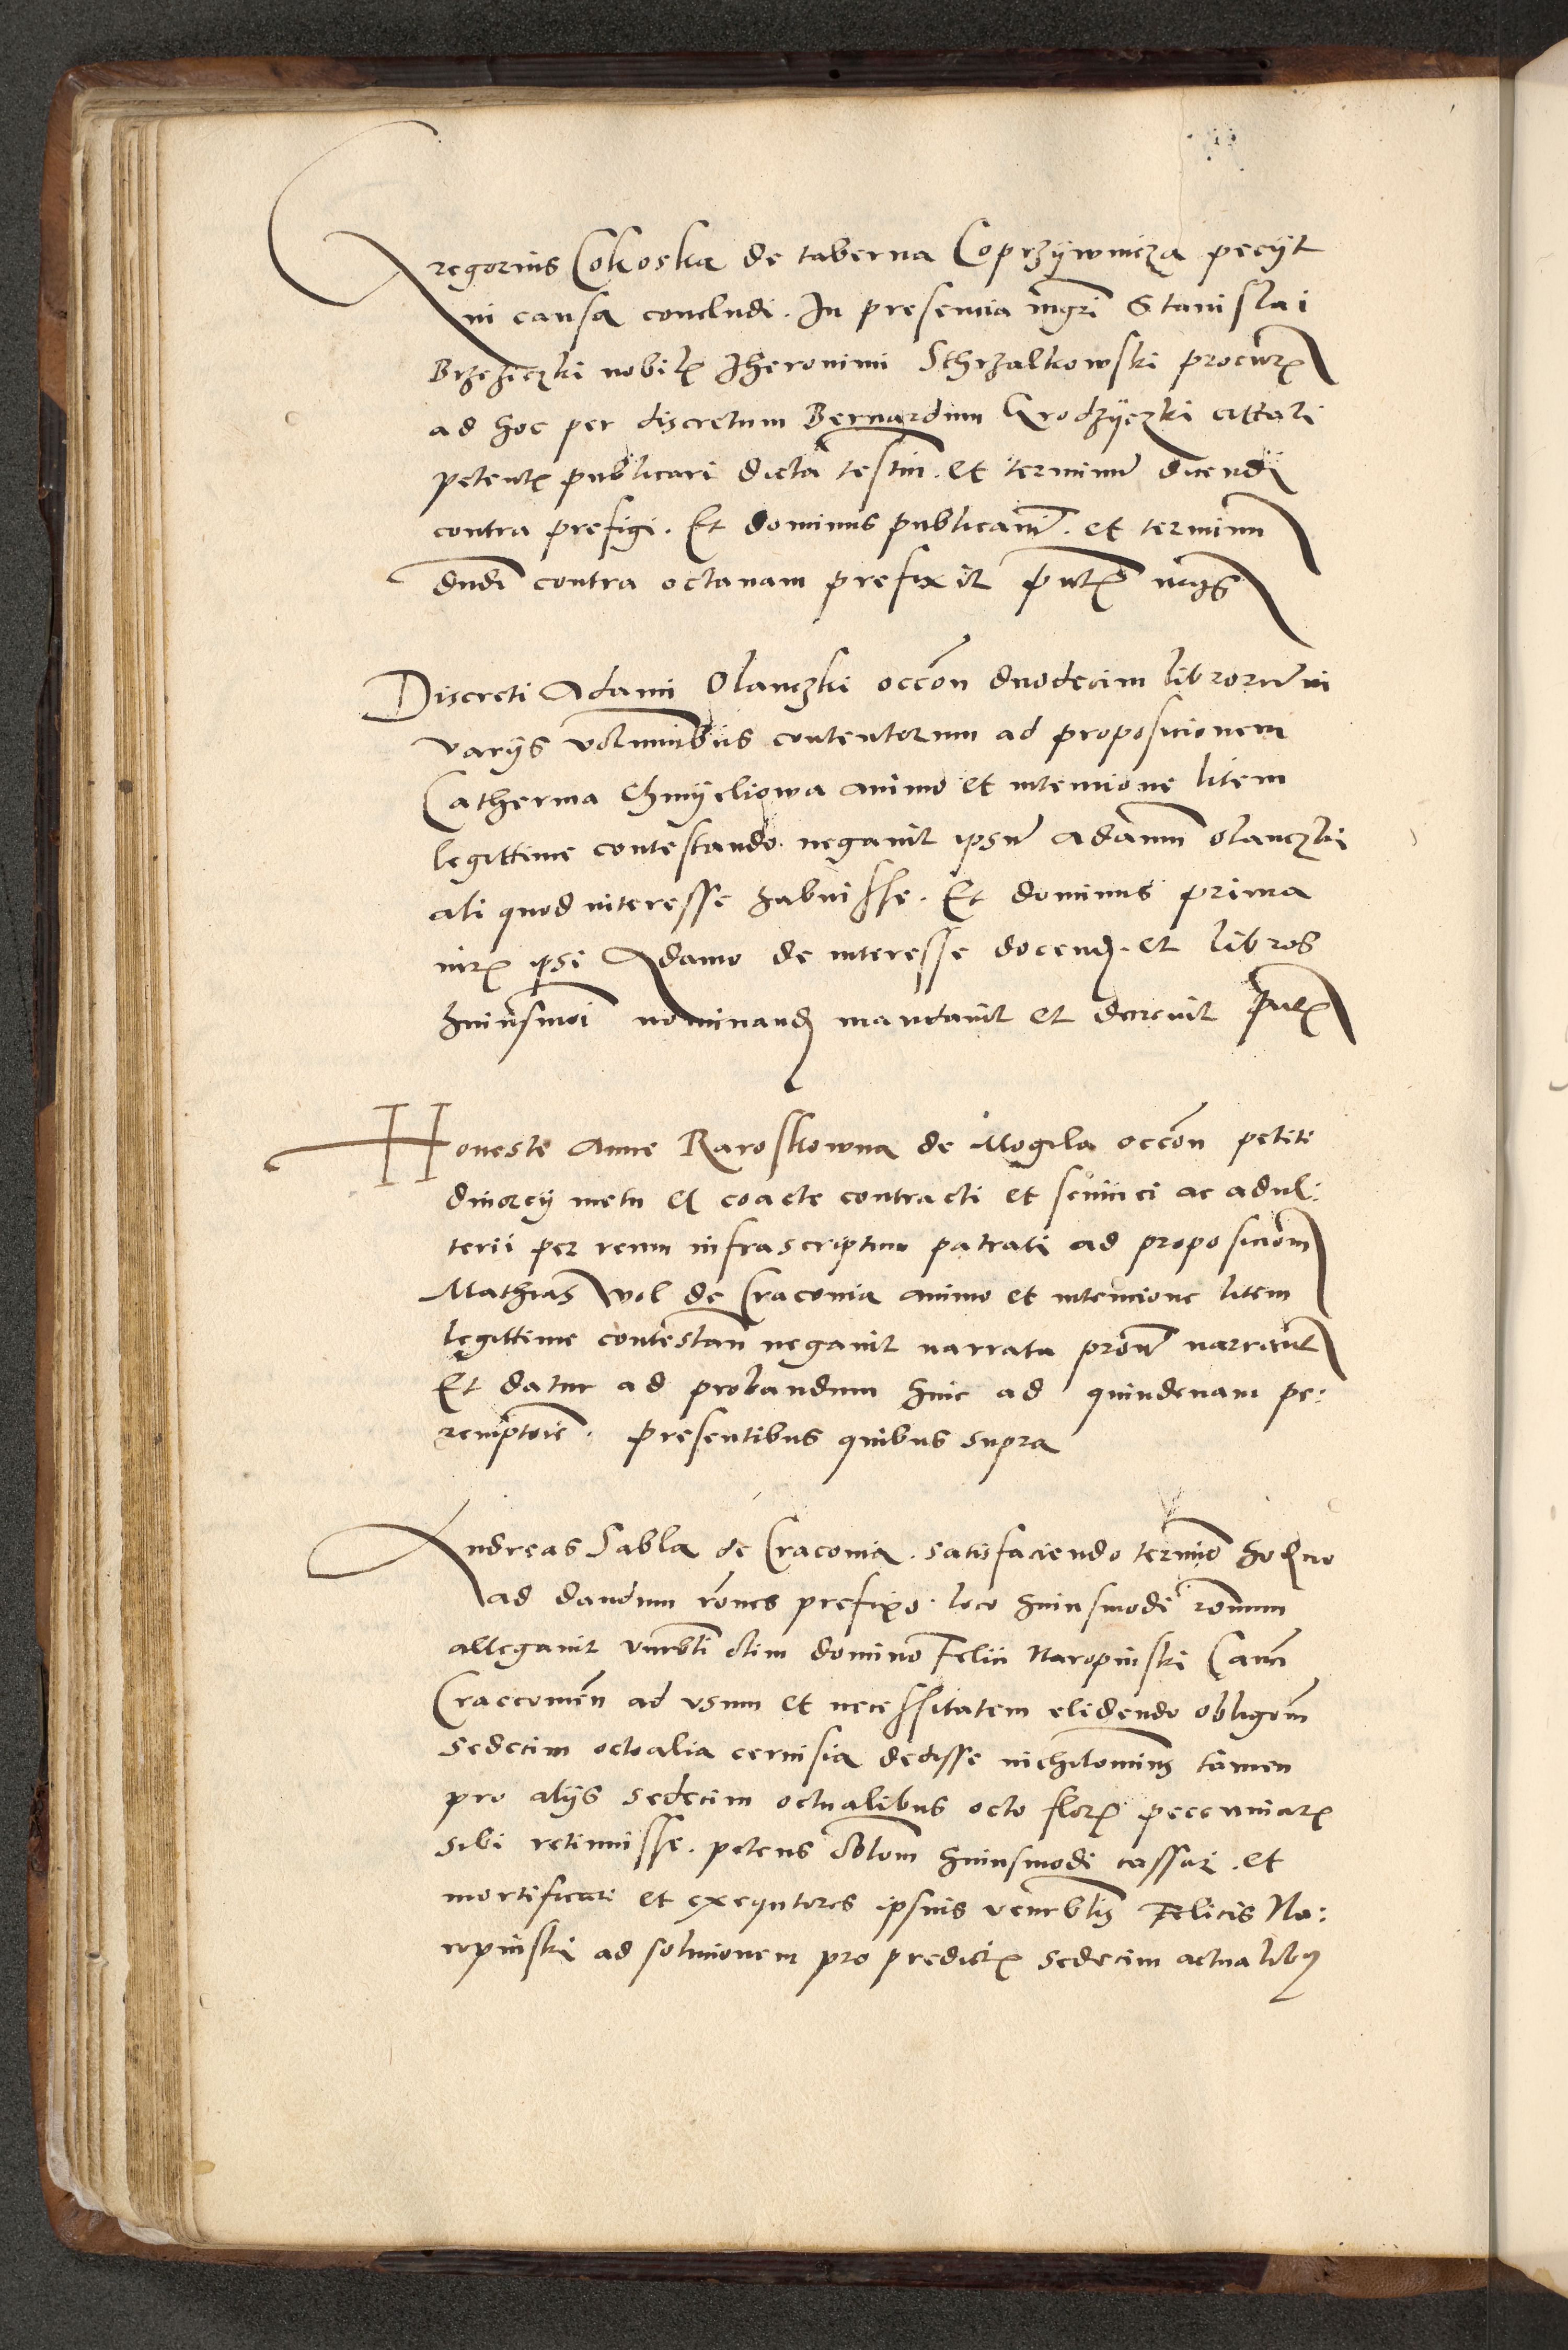 Gregorius Cokoska de taberna Coprzÿwnicza peciit
in causa concludi. In presencia mgri Stanislai
Brzeziczki nobil Jheronimi Schrzalkowski procur
ad hoc per discretum Bernardum Grodzÿczki cittati
petent publicari dicta testiu. et terminu dicendi
contra prefigi. Et dominus publicauit. et terminu
dndi contra octauam prefixit pnt
Discreti Adami Olanczki occon duodecim libroru in
varÿs voluminibus contentorum ad proposicionem
Catherina Chmÿeliowa animo et intencione litem
legittime contestando negauit ipsu Adamu Olanczki
ali quod interesse habuisse. Et dominus prima
iur ipsi Adamo de interesse docend. et libros
huiusmoi nominand mandauit et decreuit pnt
Honeste Anne Raroskowna de Mogila occon petiti
diuorcÿ metu et coacte contracti et ac adul:
terii per reum infrascriptum patrati ad proposiciom
Mathias Wol de Cracouia animo et intencione litem
legittime contestan negauit narrata prout narrant
Et datur ad probandum huic ad quindenam pe:
remptorie. presentibus quibus supra
Andreas Sabla de Cracouia. satisfaciendo termino hodierno
ad dandum rones prefixo. loco huiusmodi ronum
allegauit venerbli olim domino Felici Naropinski Canco
Craccouien ad vsum et necessitatem elidendo obligom
sedecim octoalia ceruisia dedisse nichilominus tamen
pro alÿs sedecim octualibus octo flor peccuniar
sibi retinuisse. petens oblom huiusmodi cassari. et
mortificari et exequtores ipsius venerblis Felicis Na:
ropinski ad soluiionem pro predict sedecim actualibus